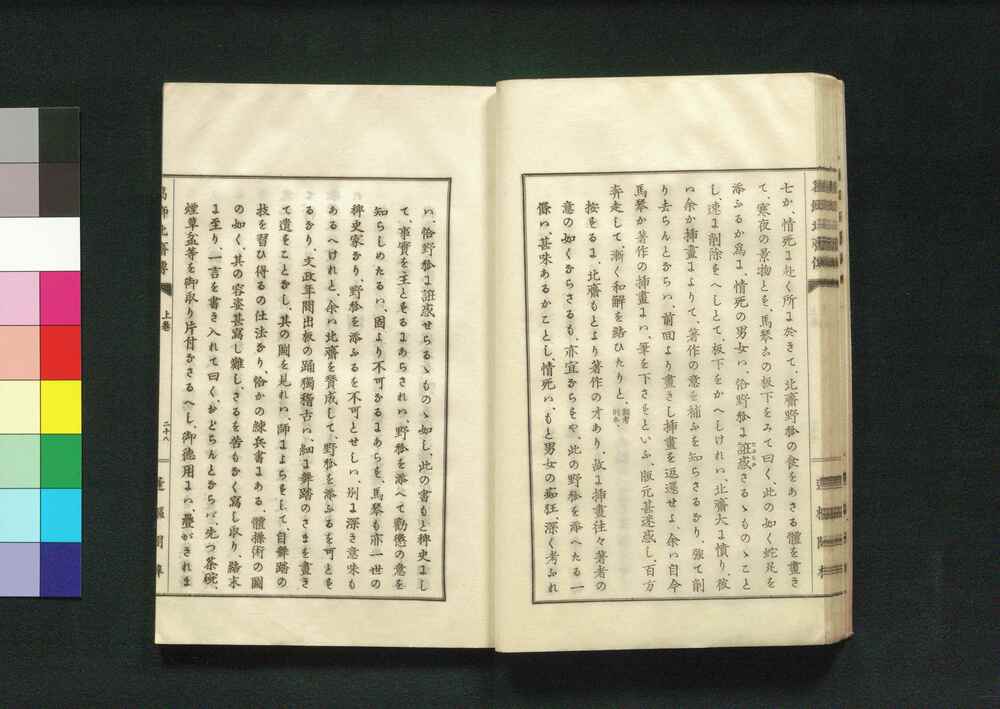 七か、情死に赴く所に於きて、北齋野狐の食をあさる體を畫き
て、寒夜の景物とを、馬琴この板下をみて曰く、此の如く蛇足を
添ふるか爲に、情死の男女ハ、恰野狐に誑惑さるゝものゝこと
し、速に削除をへしとて、板下をかへしけれハ、北齋大に憤り、彼
ハ余か挿畫によりて、著作の意を補ふを知らさるなり、強て削
り去らんとならハ、前回より畫きし挿畫を返還せよ、余ハ自今
馬琴か著作の挿畫にハ、筆を下さをといふ、版元甚迷惑し、百方
奔走して、漸く和解を結ひたりと、
按をるに、北齋もとより著作の才あり、故に挿畫往々著者の
意の如くならさるも、亦宜ならをや、此の野狐を添へたる一
條ハ、甚味あるかことし、情死ハ、もと男女の痴狂、深く考ふれ
ハ、恰野狐に誑惑せらるゝものゝ如し、此の書もと稗史にし
て、事實を主とをるにあらされハ、野狐を添へて勸懲の意を
知らしめたるハ、固より不可なるにあらを、馬琴も亦一世の
稗史家なり、野狐を添ふるを不可とせしハ、別に深き意味も
あるへけれと、余ハ北齋を賛成して、野狐を添ふるを可とを
るなり、文政年間出板の踊獨稽古ハ、細に舞踏のさまを畫き
て遺をことなし、其の圖を見れハ、師によらをして、自舞踏の
技を習ひ得るの仕法なり、恰かの練兵書にある、體操術の圖
の如く、其の容姿甚寫し難し、さるを苦もなく寫し取り、絡末
に至り、一言を書き入れて曰く、おどらんとならバ、先つ茶碗、
煙草盆等を御取り片付なさるへし、御徳用にハ、疊がきれま
上卷
二十八